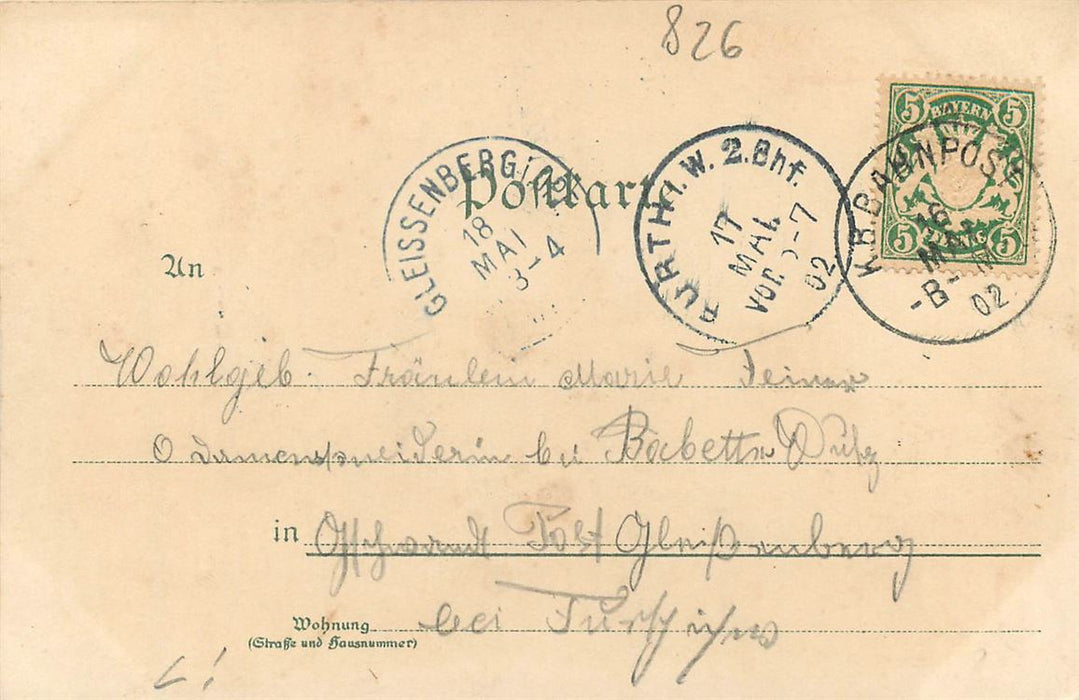 826
5 BAYERN 5
5 PFENNIG 5
K.B.BAHNPOST
16
MAI
-B-
02
FÜRTH I. W. 2.Bhf.
17
MAI
VOR. -7
02
GLEISSENBERG
18
MAI
3-4
Postkarte
An
Wohlgeb. Fräulein Marie
Damenschneiderin bei Babetta
in Gschwandt Post Gleißenberg
Wohnung bei Furth i/W
(Straße und Hausnummer)